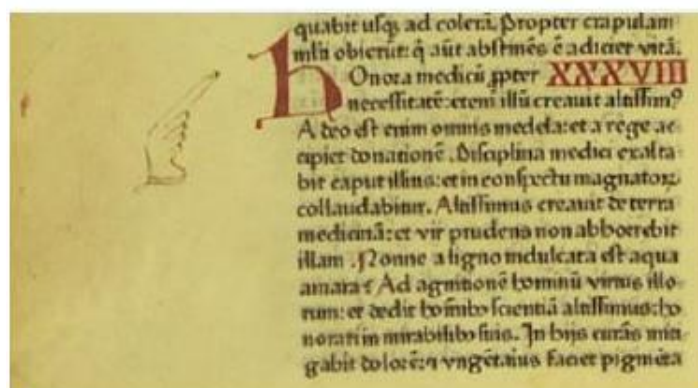 quabit usq; ad colerā. Propter crapulam
mlti obierūt: q̄ aūt abstinēs ē adiciet vitā.
HOnora medicū ꝓpter XXXVIII
necessitatē: eteni illū creauit altissimꝰ
A deo est enim omnis medela: et a rege ac
cipiet donationē. Disciplina medici exalta
bit caput illius: et in conspectu magnatoꝝ
collaudabitur. Altissimus creauit de terra
medicinā: et vir prudens non abhorrebit
illam. Nonne a ligno indulcata est aqua
amara? Ad agnitionē hominū virtus illo
rum: et dedit homībꝰ scientiā altissimus: ho
norari in mirabilibꝰ suis. In hijs curās miti
gabit dolorē: ⁊ vngētarius faciet pigmēta